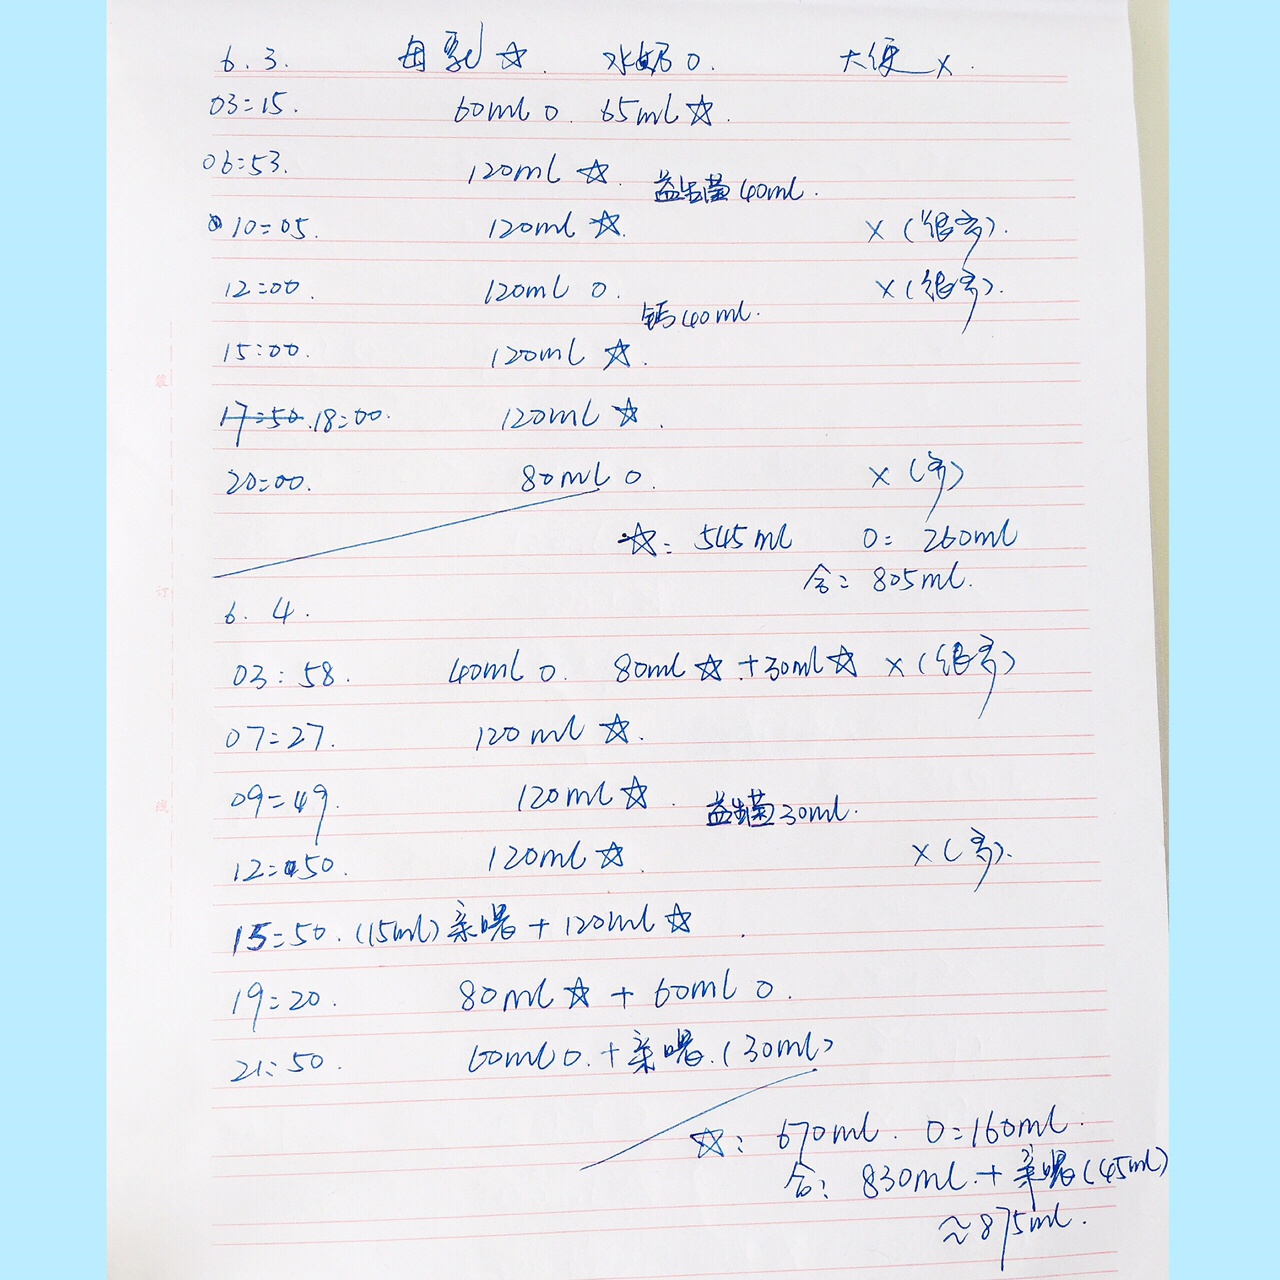 6.3. 母乳☆. 水奶O. 大便x.
03:15. 60ml O. 65ml☆.
06:53. 120ml☆. 益生菌40ml.
10:05. 120ml☆. x(很多).
12:00. 120ml O. x(很多).
钙40ml.
15:00. 120ml☆.
17:50.18:00. 120ml☆.
20:00. 80ml O. x(多)
☆: 545ml O: 260ml
合: 805ml.
6.4.
03:58. 40ml O. 80ml☆+30ml☆ x(很多)
07:27. 120ml☆.
09:49. 120ml☆. 益生菌30ml.
12:50. 120ml☆. x(多).
15:50.(15ml)亲曙+120ml☆
19:20. 80ml☆+60ml O.
21:50. 60ml O.+亲曙.(30ml)
☆: 670ml. O:160ml.
合: 830ml.+亲曙(45ml)
≈875ml.
装
订
线